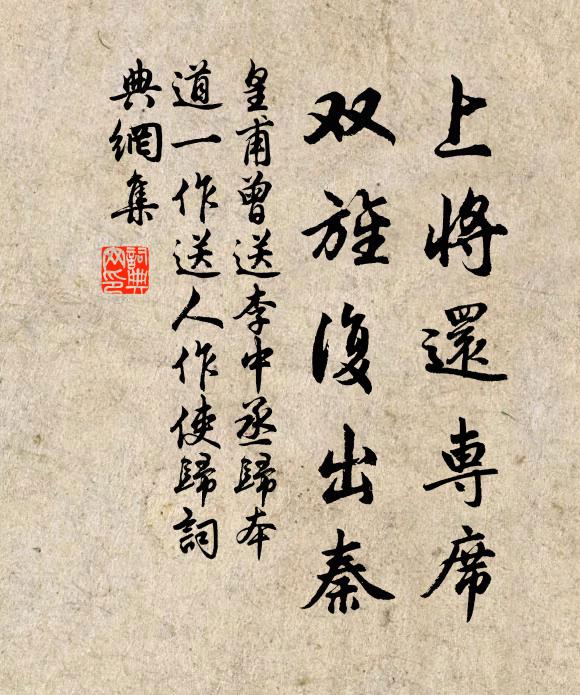 上將還専席
双旌復出秦
皇甫曾送李中丞歸本
道一作送人作使歸詞
典網集
詞典網印